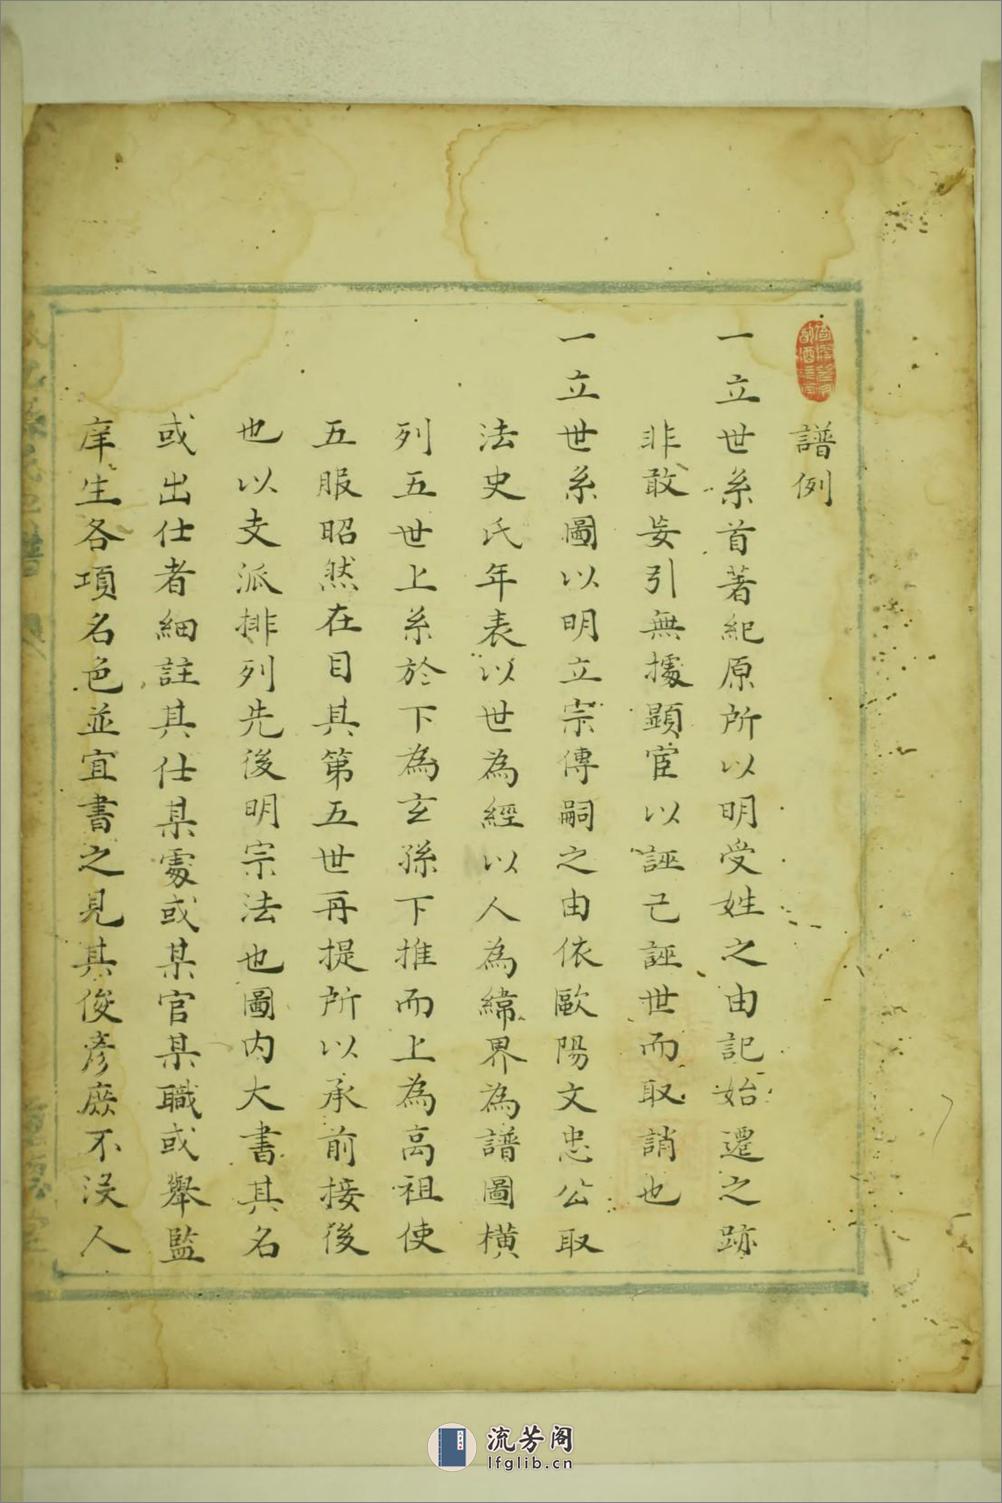 譜例
一立世系首著紀原所以明受姓之由記始遷之跡
非敢妄引無據顯宦以誣己誣世而取誚也
一立世系圖以明立宗傳嗣之由依歐陽文忠公取
法史氏年表以世為經以人為緯界為譜圖橫
列五世上系於下為玄孫下推而上為高祖使
五服昭然在目其第五世再提所以承前接後
也以支派排列先後明宗法也圖内大書其名
或出仕者細註其仕某處或某官某職或舉監
庠生各項名色並宜書之見其俊彥庶不没人
流芳阁
lfglib.cn